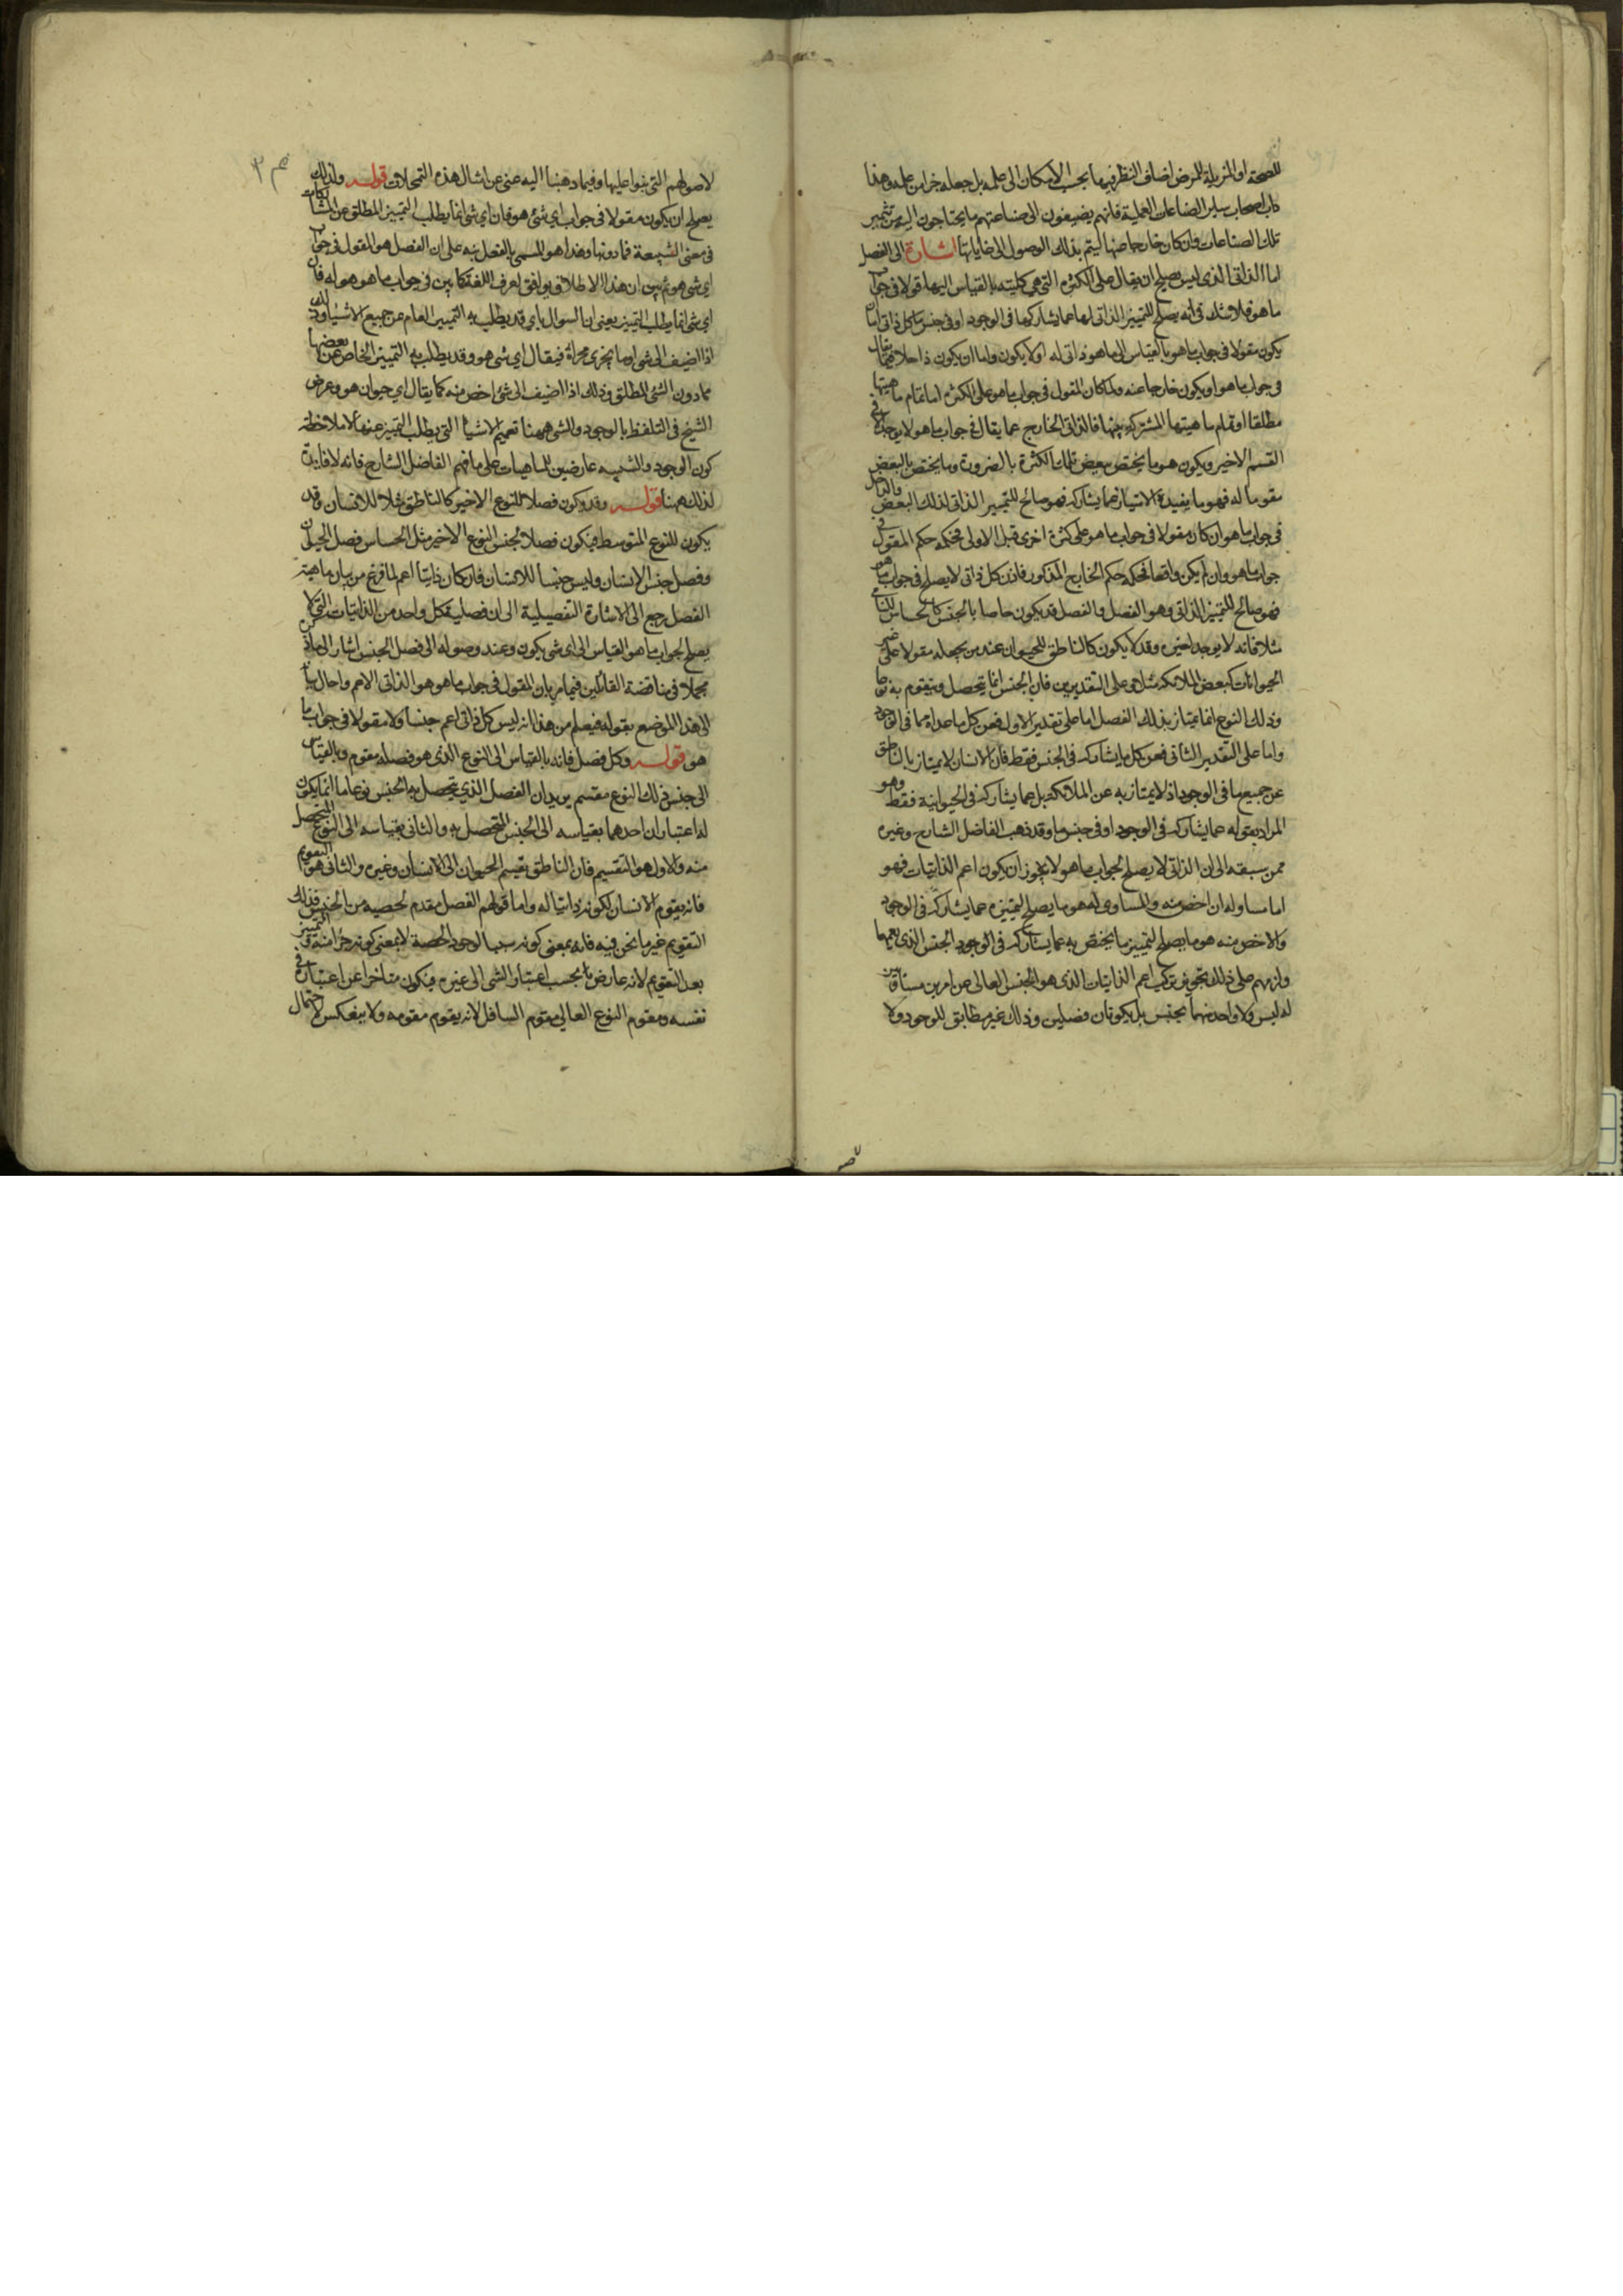 للصحة او المزيلة للمرض اضاف النظر فيها بحسب الامكان الى علمه بل جعله جزا من علمه وهذا
داب اصحاب ساير الصناعات العملية فانهم يضيفون الى صناعتهم ما يحتاجون اليه من تتميم
تلك الصناعات وان كان خارجا عنها ليتم بذلك الوصول الى غاياتها اشارة الى الفصل
اما الذاتى الذى ليس يصلح ان يقال على الكثرة التى هى كليته بالقياس اليها قولا فى جواب
ما هو فلا شك فى انه يصلح للتمييز الذاتى لها عما يشاركها فى الوجود او فى جنس ما كل ذاتى اما ان
يكون مقولا فى جواب ما هو بالقياس الى ما هو ذاتى له او لا يكون واما ان يكون داخلا فيما يقال
فى جواب ما هو او يكون خارجا عنه ولما كان المقول فى جواب ما هو على الكثرة اما تمام ماهيتها
مطلقا او تمام ماهيتها المشتركة بينها فالذاتى الخارج عما يقال فى جواب ما هو لا يوجد فى
القسم الاخير ويكون هو ما يختص ببعض تلك الكثرة بالضرورة وما يختص بالبعض
مقوما له فهو ما يفيده الامتياز عما يشاركه فهو صالح للتمييز الذاتى لذلك البعض والداخل
فى جواب ما هو ان كان مقولا فى جواب ما هو على كثرة اخرى قبل الاولى فحكمه حكم المقول فى
جواب ما هو وان لم يكن واقعا فحكمه حكم الخارج المذكور فاذن كل ذاتى لا يصلح فى جواب ما هو
فهو صالح للتمييز الذاتى وهو الفصل والفصل قد يكون خاصا بالجنس كالحساس للنامى
مثلا فانه لا يوجد لغيره وقد لا يكون كالناطق للحيوان عند من يجعله مقولا على غير
الحيوانات كبعض الملائكة مثلا وعلى التقديرين فان الجنس انما يتحصل ويتقوم به نوعا
وذلك النوع انما يمتاز بذلك الفصل اما على تقدير الاول فعن كل ما عداه مما فى الوجود
واما على التقدير الثانى فعن كل ما يشاركه فى الجنس فقط فان الانسان لا يمتاز بالناطق
عن جميع ما فى الوجود اذ لا يمتاز به عن الملائكة بل عما يشاركه فى الحيوانية فقط وهو
المراد بقوله عما يشاركه فى الوجود او فى جنس ما وقد ذهب الفاضل الشارح وغيره
ممن سبقه الى ان الذاتى لا يصلح لجواب ما هو لا يجوز ان يكون اعم الذاتيات فهو
اما مساو له او اخص منه والمساوى له هو ما يصلح لتمييزه عما يشاركه فى الوجود
والاخص منه هو ما يصلح لتمييز ما يختص به عما يشاركه فى الوجود الجنس الذى يعمهما
ولزمهم على ذلك تجويز تركيب اعم الذاتيات الذى هو الجنس العالى من امرين مساويين
له ليس ولا واحد منهما بجنس بل يكونان فصلين وذلك غير مطابق للوجود ولا
لاصولهم التى بنوا عليها وفيما ذهبنا اليه غنى عن امثال هذه التمحلات قوله ولذلك
يصلح ان يكون مقولا فى جواب اى شئ هو فان اى شئ انما يطلب التمييز المطلق عن المشاركات
فى معنى الشيئية فما دونها وهذا هو المسمى بالفصل نبه على ان الفصل هو المقول فى جواب
اى شئ هو ثم بين ان هذا الاطلاق يوافق لعرف اللغة كما بين فى جواب ما هو هو له فان
اى شئ انما يطلب التمييز يعنى ان السوال باى قد يطلب به التمييز العام عن جميع الاشياء وذلك
اذا اضيف الى شئ او ما يجرى مجراه فيقال اى شئ هو وقد يطلب به التمييز الخاص عن بعضها
مما دون الشئ المطلق وذلك اذا اضيف الى شئ اخص منه كما يقال اى حيوان هو وغرض
الشيخ فى التلفظ بالوجود والشئ ههنا تعميم الاشياء التى يطلب التمييز عنها لا ملاحظة
كون الوجود والشيئية عارضين للماهيات على ما فهم الفاضل الشارح فانه لا فايدة
لذلك ههنا قوله وقد يكون فصلا للنوع الاخير كالناطق مثلا للانسان وقد
يكون للنوع المتوسط فيكون فصلا لجنس النوع الاخير مثل الحساس فصل الحيوان
وفصل جنس الانسان وليس جنسا للانسان فان كان ذاتيا اعم لما فرغ من بيان ماهية
الفصل رجع الى الاشارة التفصيلية الى ان فصلية كل واحد من الذاتيات التى لا
يصلح لجواب ما هو القياس الى اى شئ يكون وعند وصوله الى فصل الجنس اشار الى ما ذكره
مجملا فى مناقضة القائلين فيما مر بان المقول فى جواب ما هو هو الذاتى الاعم واحال بيانه
الى هذا الموضع بقوله فيعلم من هذا انه ليس كل ذاتى اعم جنسا ولا مقولا فى جواب ما
هو قوله وكل فصل فانه بالقياس الى النوع الذى هو فصله مقوم وبالقياس
الى جنس ذلك النوع مقسم يريد ان الفصل الذى يتحصل به الجنس نوعا ما انما يكون
له اعتباران احدهما بقياسه الى الجنس المتحصل به والثانى بقياسه الى النوع المتحصل
منه والاول هو التقسيم فان الناطق يقسم الحيوان الى الانسان وغيره والثانى هو التقويم
فانه يقوم الانسان لكونه ذاتيا له واما قولهم الفصل مقدم لحصته من الجنس فذلك
التقويم غير ما نحن فيه فانه بمعنى كونه سببا لوجود الحصة لا بمعنى كونه جزا منه والتمييز
بعد التقويم لانه عارض ما بحسب اعتبار الشئ الى غيره فيكون متاخرا عن اعتباره فى
نفسه ومقوم النوع العالى مقوم السافل لانه يقوم مقومه ولا ينعكس لاحتمال